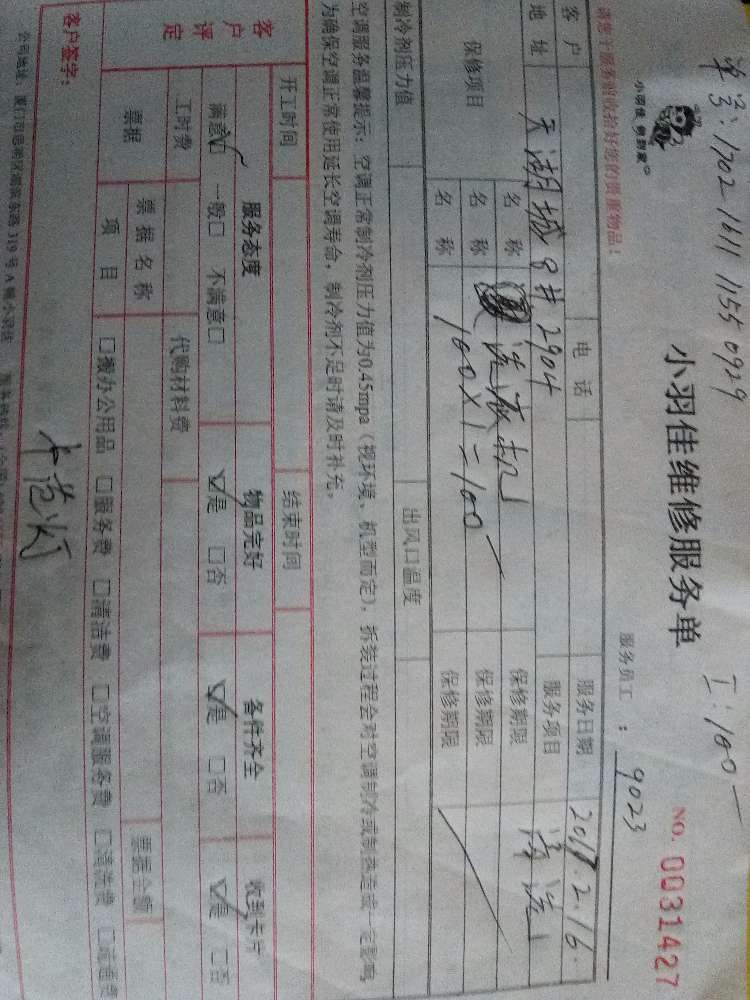 单号: 1702 1611 1155 0929
工: 100
小羽佳 修到家
小羽佳维修服务单
NO. 0031427
请您于服务前收拾好您的贵重物品!
服务员工: 9023
客户
电话
服务日期
2017.2.16.
地址
天湖城8#2904
服务项目
清洗
保修项目
名称
洗衣机
保修期限
名称
100×1=100
保修期限
名称
保修期限
制冷剂压力值
出风口温度
空调服务温馨提示: 空调正常制冷剂压力值为0.45mpa (视环境、机型而定), 拆装过程会对空调制冷或制热造成一定影响,
为确保空调正常使用延长空调寿命, 制冷剂不足时请及时补充。
开工时间
结束时间
客户评定
服务态度
物品完好
备件齐全
收到卡片
满意☑ 一般□ 不满意□
☑是 □否
☑是 □否
☑是 □否
工时费
代购材料费
票据
票据名称
票据金额
项目
□搬办公用品 □服务费 □清洁费 □空调服务费 □清洗费
客户签字: